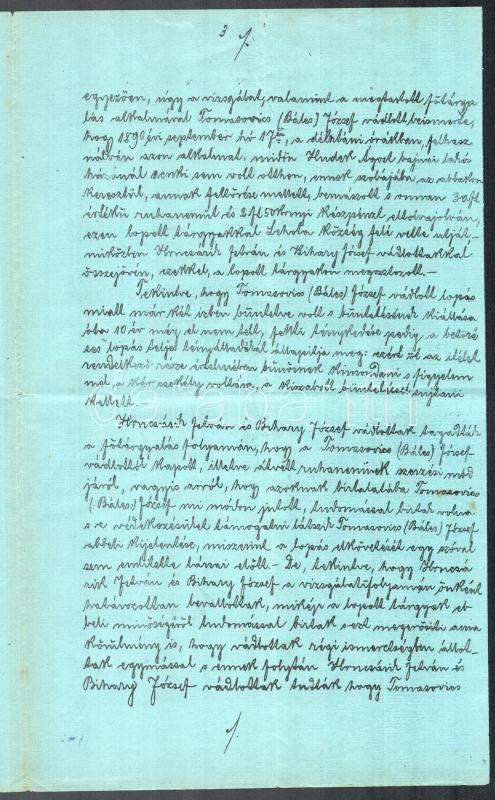 3
egyezően, úgy a vizsgálat, valamint a megtartott főtárgya-
lás alkalmával Tomasovics (Báles) József vádlott beismerte,
hogy 1890 évi september hó 17én, a délutáni órákban, felhasz-
nálván azon alkalmat, midőn Hudek bajnai lakó
házánál senki sem volt otthon, ennek szobájába az ablakon
keresztül, annak feltörése mellett, bemászott s onnan 30 ft
értékű ruhaneműt és 2 ft 50 krnyi készpénzt eltolvajolván,
ezen lopott tárgyakkal Lehota község felé vette útját,
miközben Hrncsárik István és Bihary József vádlottakkal
összejövén, ezekkel, a lopott tárgyakon megosztozott.-
Tekintve, hogy Tomasovics (Báles) József vádlott lopás
miatt már két ízben büntetve volt s büntetésének kiállása
óta 10 év még el nem telt, jelen ténykedése pedig, a betöré-
ses lopás teljes tényálladékát állapítja meg: ezért őt az ítélet
rendelkező része értelmében bűnösnek kimondani s figyelem
mel, a kár csekély voltára, a kiszabott büntetéssel sujtani
kellett.
Hrncsárik István és Bihary József vádlottak tagadták
a főtárgyalás folyamán, hogy a Tomasovics (Báles) József
vádlottól kapott, illetve átvett ruhaneműek szerzési mód
járól, vagyis arról, hogy azoknak birtokába Tomasovics
(Báles) József mi módon jutott, tudomással bírtak volna
s e védekezésüket támogatni látszik Tomasovics (Báles) József
abbeli kijelentése, miszerint a lopás elkövetését egy szóval
sem említette társai előtt.- De, tekintve, hogy Hrncsá
rik István és Bihary József a vizsgálat folyamán önként
határozottan bevallották, mikép a lopott tárgyak eb-
beli minőségéről tudomással bírtak s ezt megerősíti azon
körülmény is, hogy vádlottak régi ismeretségben állot-
tak egymással s ennek folytán Hrncsárik István és
Bihary József vádlottak tudták hogy Tomasovics